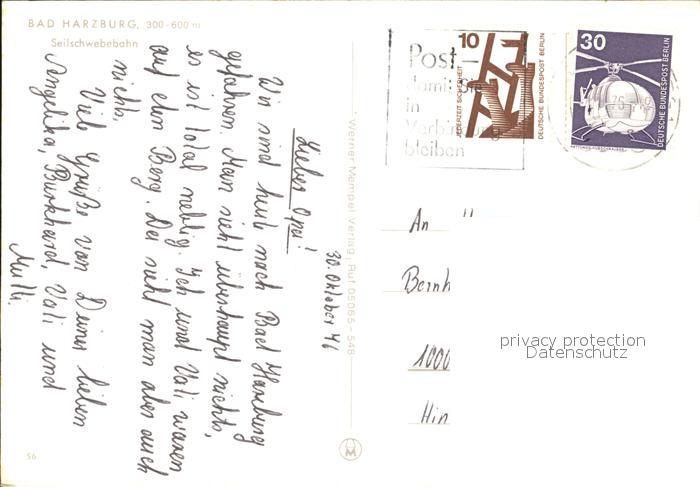 BAD HARZBURG, 300-600 m
Seilschwebebahn
30. Oktober 76
Lieber Opa!
Wir sind heute nach Bad Harzburg
gefahren. Man sieht überhaupt nichts,
es ist total neblig. Ich und Vati waren
auf dem Berg. Da sieht man aber auch
nichts.
Viele Grüße von Deinen lieben
Angelika, Burkhard, Vati und
Mutti.
56
Werner Mempel Verlag, Ruf 05065-548
Post -
damit Sie
in
Verbindung
bleiben
10
JEDERZEIT SICHERHEIT
DEUTSCHE BUNDESPOST BERLIN
30
DEUTSCHE BUNDESPOST BERLIN
An
Bernh
1000
Hin
privacy protection
Datenschutz